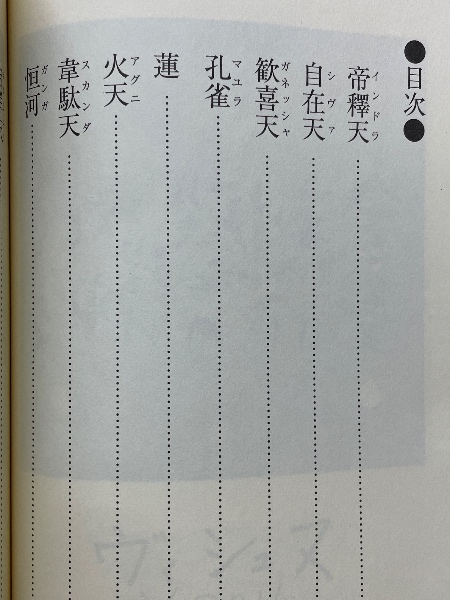 ●目次●
帝釋天 インドラ
自在天 シヴァ
歓喜天 ガネッシャ
孔雀 マユラ
蓮
火天 アグニ
韋駄天 スカンダ
恒河 ガンガ
ヴィシュヌ